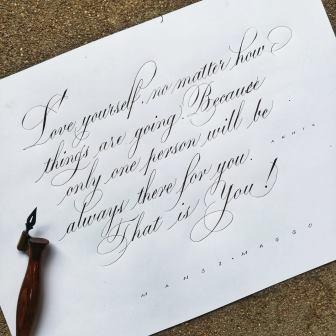 Love yourself, no matter how
things are going. Because
only one person will be
always there for you.
That is You!